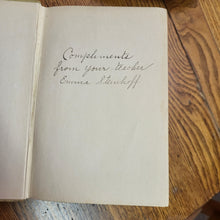 Compliments
from your Teacher
Emma Steinhoff